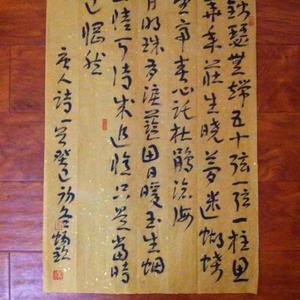 錦瑟無端五十弦一弦一柱思
華年莊生曉夢迷蝴蝶
望帝春心託杜鵑滄海
月明珠有淚藍田日暖玉生烟
此情可待成追憶只是當時
已惘然
唐人詩一首癸巳初冬